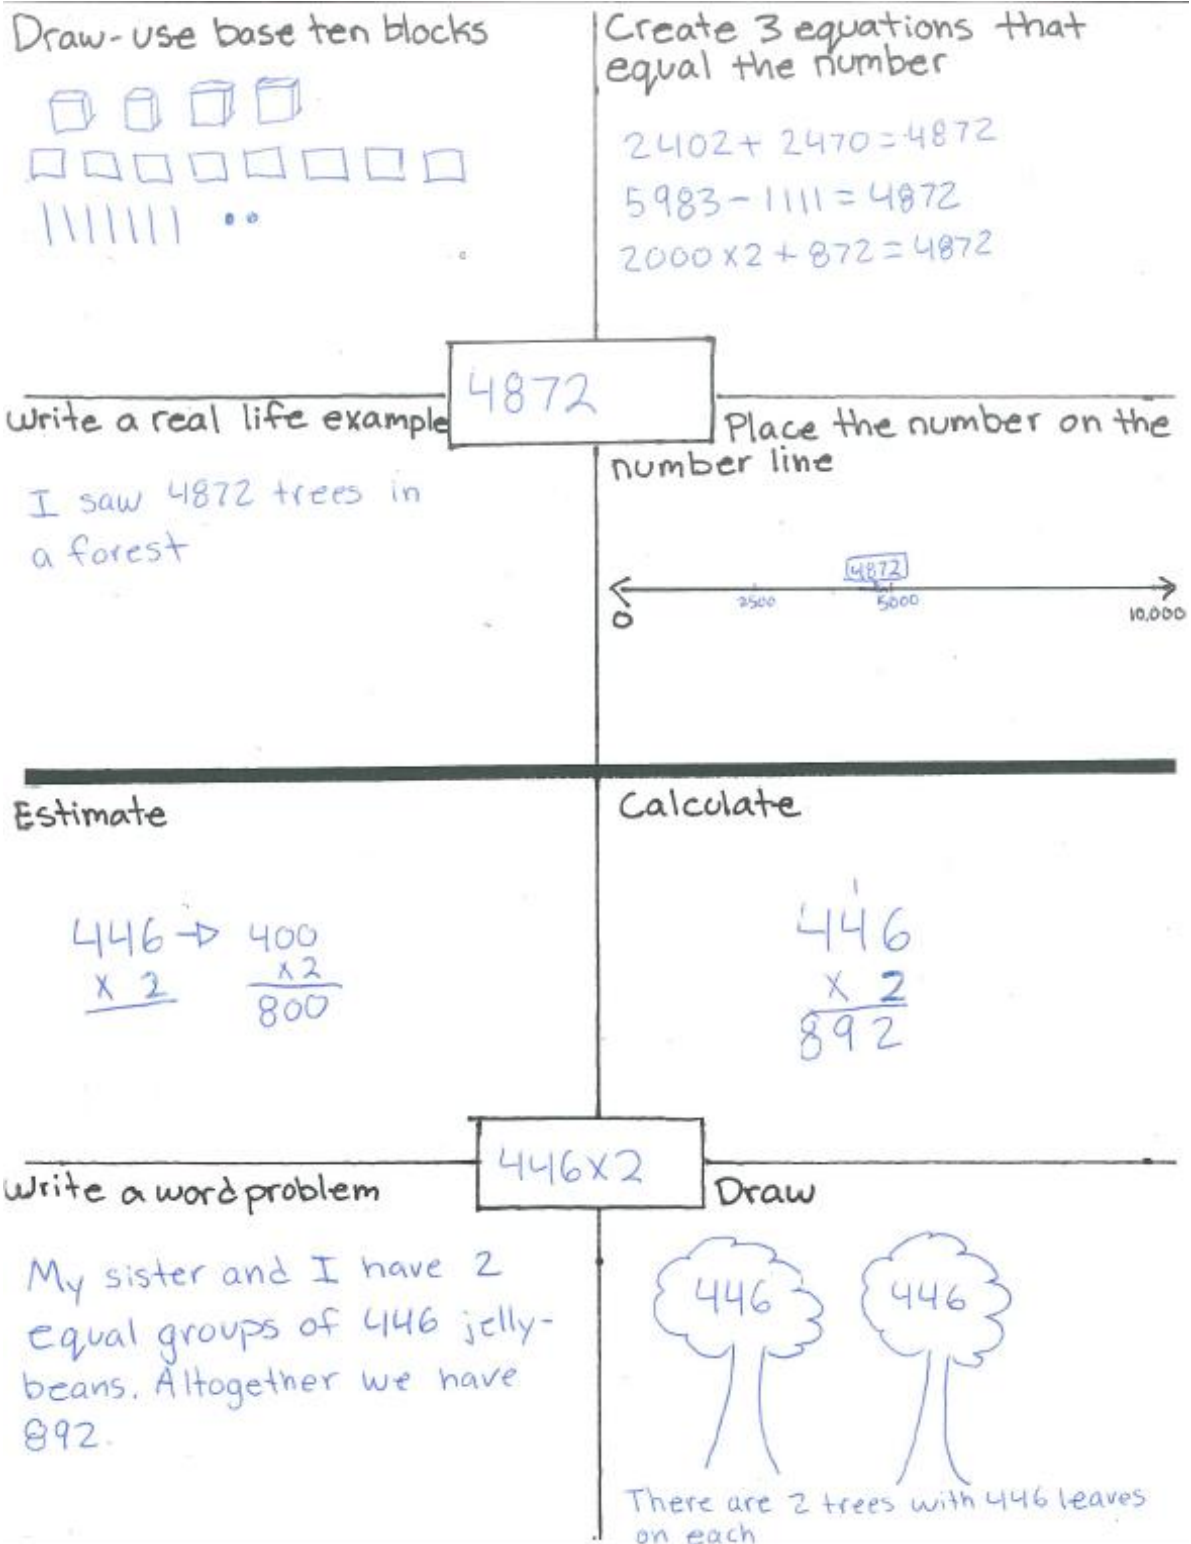 Draw-use base ten blocks
Create 3 equations that
equal the number
2402+ 2470=4872
5983-1111=4872
2000x2+872=4872
4872
Write a real life example
I saw 4872 trees in
a forest
Place the number on the
number line
4872
0
2500
5000
10,000
Estimate
446 → 400
x 2 x2
800
Calculate
1
446
x 2
892
446x2
Write a word problem
My sister and I have 2
equal groups of 446 jelly-
beans. Altogether we have
892.
Draw
446 446
There are 2 trees with 446 leaves
on each